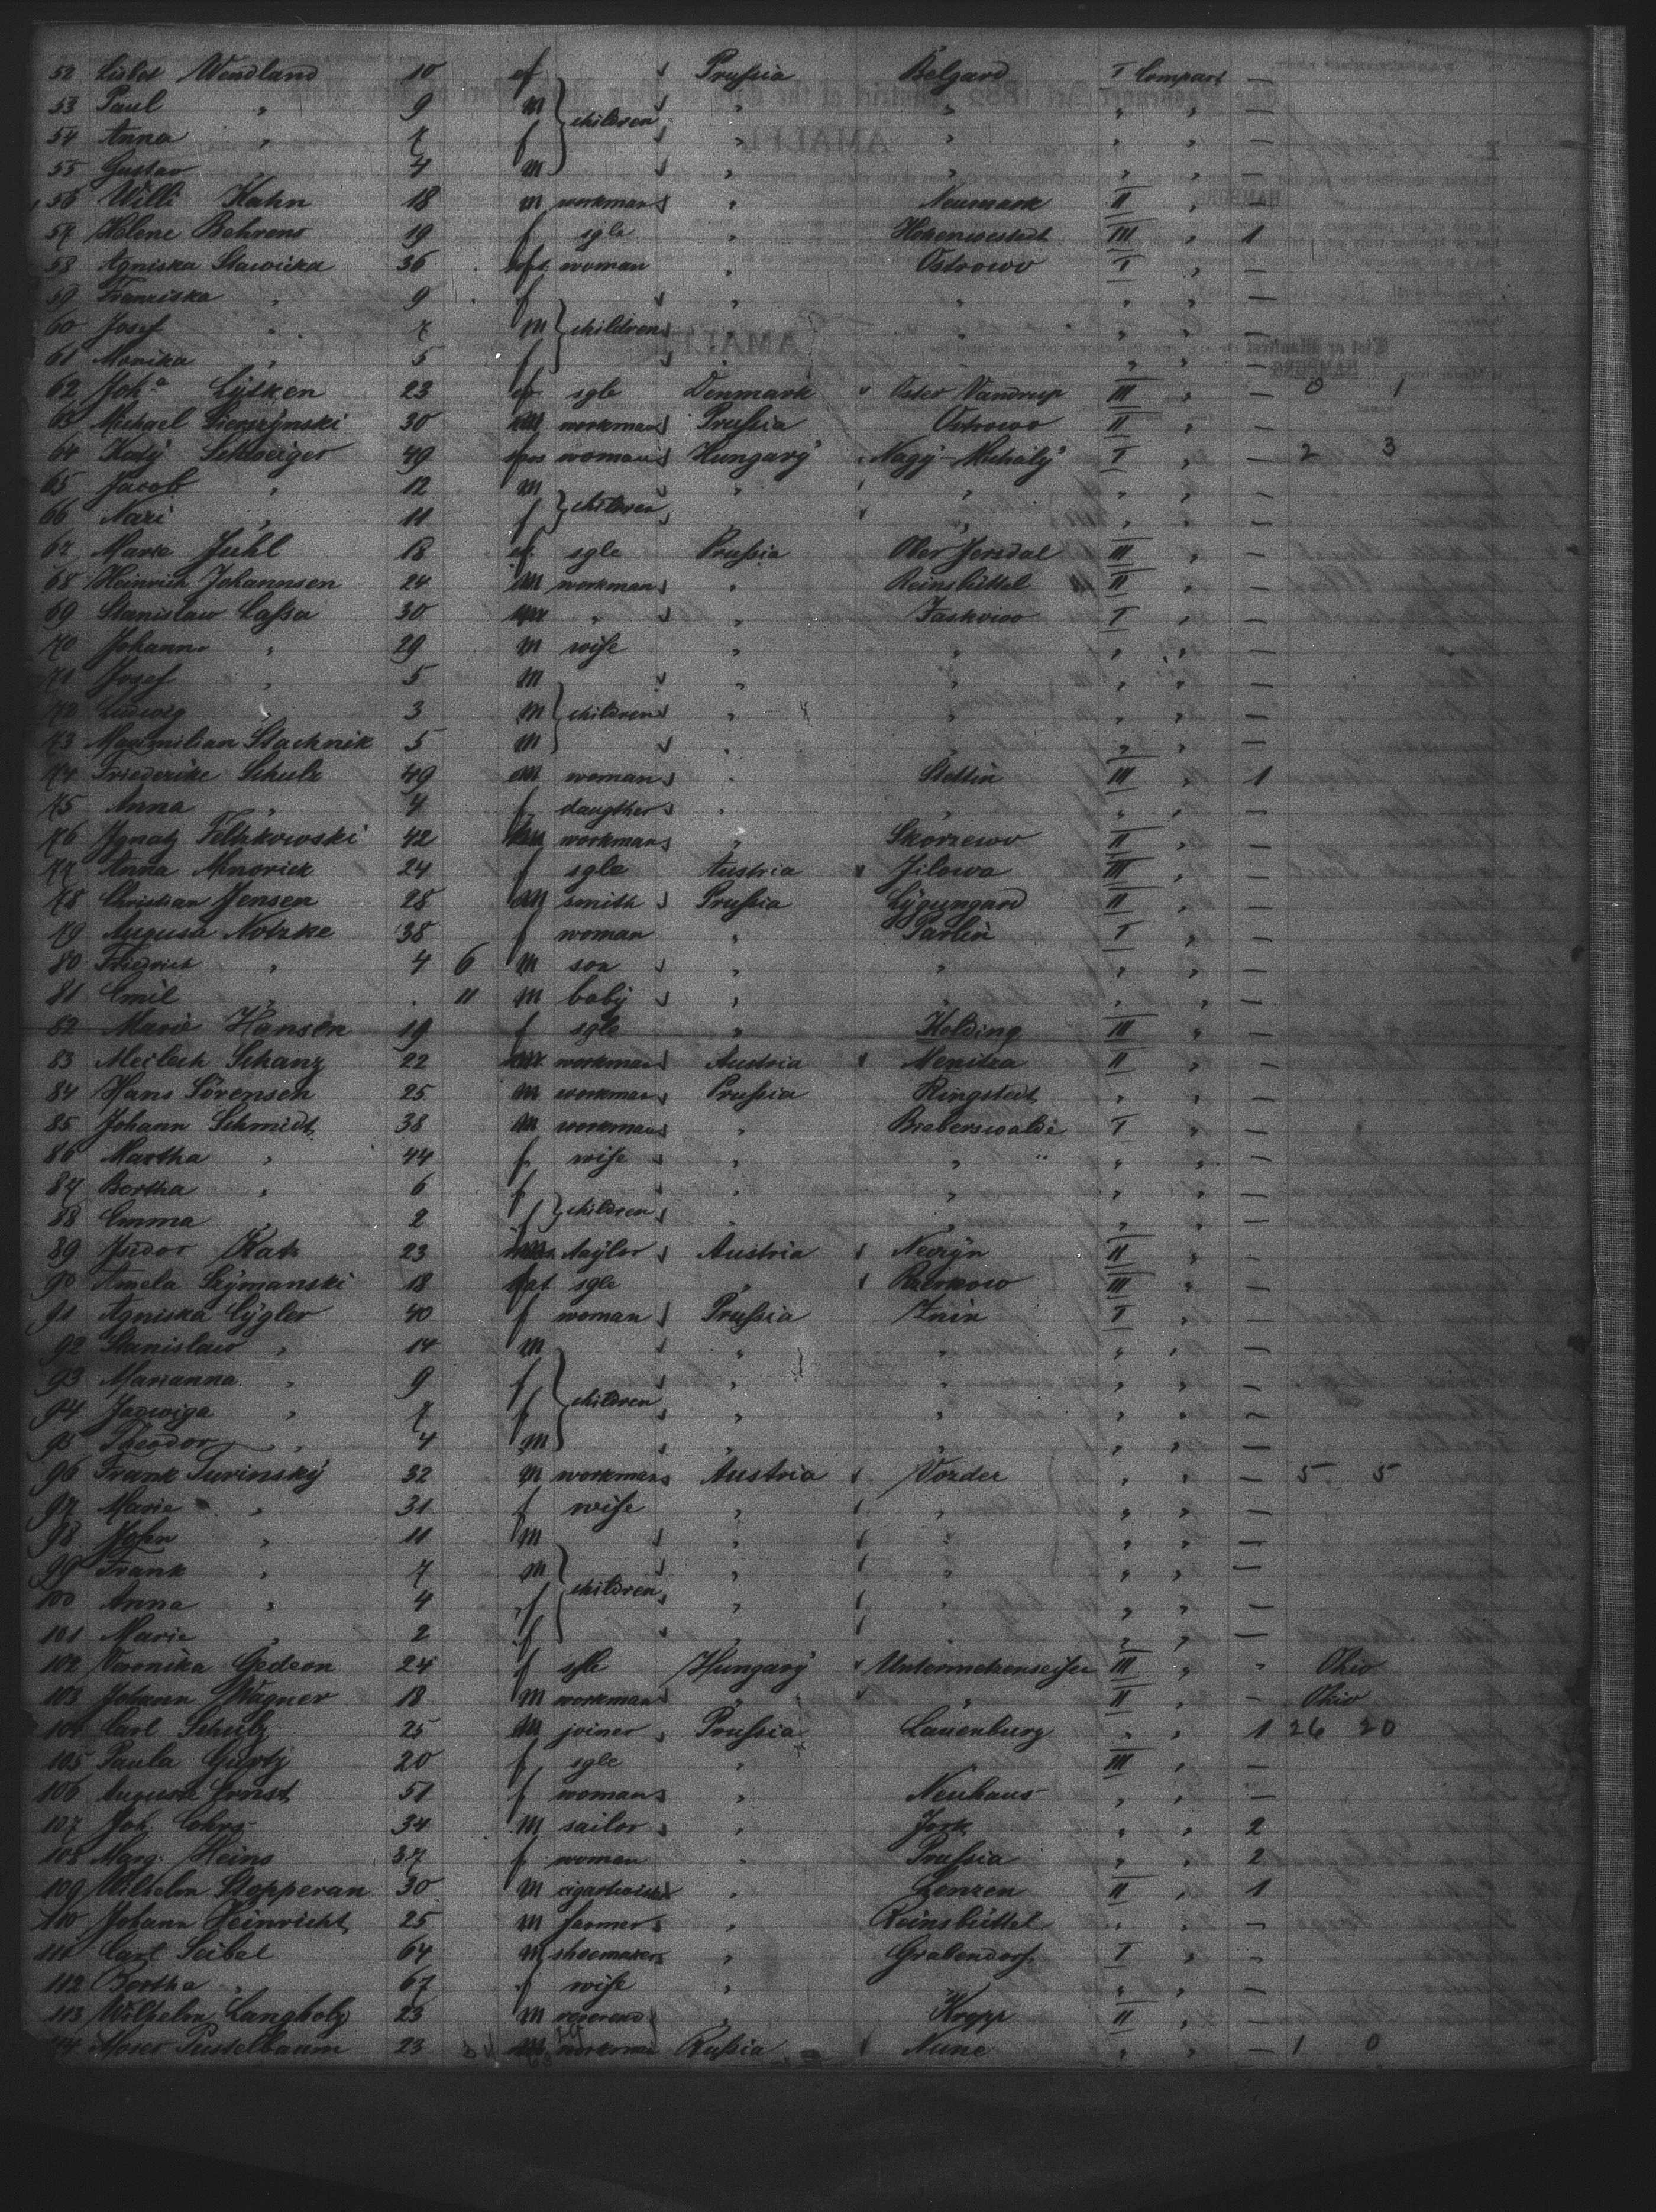 52 Lisbet Wendland 10 f Prussia Belgard I Compart —
53 Paul " 9 m children " " " " —
54 Anna " 7 f " " " " —
55 Gustav " 4 m " " " " —
56 Willi Kahn 18 m workman " Neumark II " —
57 Helene Behrens 19 f sgle " Hohenwestedt III " 1
58 Agniska Stawicka 36 woman " Ostrowo I " —
59 Franziska " 9 f " " " " —
60 Josef " 7 m children " " " " —
61 Monika " 5 f " " —
62 Joh.a Lytken 23 f sgle Denmark Oster Vandrup III " — 0 1
63 Michael Sierszynski 30 workman Prussia Ostrowo II " —
64 Katy Schweiger 49 woman Hungary Nagy-Mihaly I " — 2 3
65 Jacob " 12 m " " " " —
66 Nari " 11 f children " " " " —
67 Marie Juhl 18 f sgle Prussia Ober Jersdal III " —
68 Heinrich Johannsen 24 m workman " Reinsbüttel II " —
69 Stanislaw Lassa 30 " " Jaskowo I " —
70 Johanna " 29 m wife " " " " —
71 Josef " 5 m " " " " —
72 Ludwig " 3 m children " " " " —
73 Maximilian Stachnik 5 m " " " " —
74 Friederike Schulz 49 m woman " Stettin III " 1
75 Anna " 4 f daugther " " " " —
76 Ignatz Feltzkowski 42 workman " Skorzewo II " —
77 Anna Minorick 24 f sgle Austria Jilowa III " —
78 Christian Jensen 28 m smith Prussia Lygungard II " —
79 Augusta Notzke 38 f woman " Parlin I " —
80 Friedrich " 4 6 m son " " " " —
81 Emil " 11 m baby " " " " —
82 Marie Hansen 19 f sgle " Kolding III " —
83 Meilech Schanz 22 workman Austria Menitza II " —
84 Hans Sörensen 25 m workman Prussia Ringstedt " " —
85 Johann Schmidt 38 m workman " Bieberswalde I " —
86 Martha " 44 f wife " " " " —
87 Bertha " 6 f " " " " —
88 Emma " 2 f children " " " " —
89 Isidor Katz 23 taylor Austria II " —
90 Amela Szymanski 18 sgle " III " —
91 Agniska Cygler 40 f woman Prussia Znin I " —
92 Stanislaw " 14 m " " " " —
93 Marianna " 9 f " " " " —
94 Jadwiga " 7 f children " " " " —
95 Theodor " 4 m " " " " —
96 Frank Turinsky 32 m workman Austria Vozder " " — 5 5
97 Marie " 31 f wife " " " " —
98 John " 11 m " " " " —
99 Frank " 7 m " " " " —
100 Anna " 4 f children " " " " —
101 Marie " 2 f " " " " —
102 Veronika Gedeon 24 f sgle Hungary Untermetzenseifen III " " Ohio
103 Johann Wagner 18 m workman " " II " — Ohio
104 Carl Schulz 25 m joiner Prussia Lauenburg " " 1 26 20
105 Paula Gurtz 20 f sgle " III " —
106 Auguste Ernst 51 f woman " Neuhaus " " —
107 Joh. Cohrs 34 m sailor " Jork " " 2
108 Marg. Heins 37 f woman " Prussia " " 2
109 Wilhelm Stopperan 30 m " Lenzen II " 1
110 Johann Heinricht 25 m farmer " Reinsbüttel " " —
111 Carl Seibel 64 m shoemaker " Grabendorf I " —
112 Bertha " 67 f wife " " " " —
113 Wilhelm Langholz 25 m reverend " Kropp II " —
114 Moses Teitelbaum 23 workman Russia Nune " " — 1 0